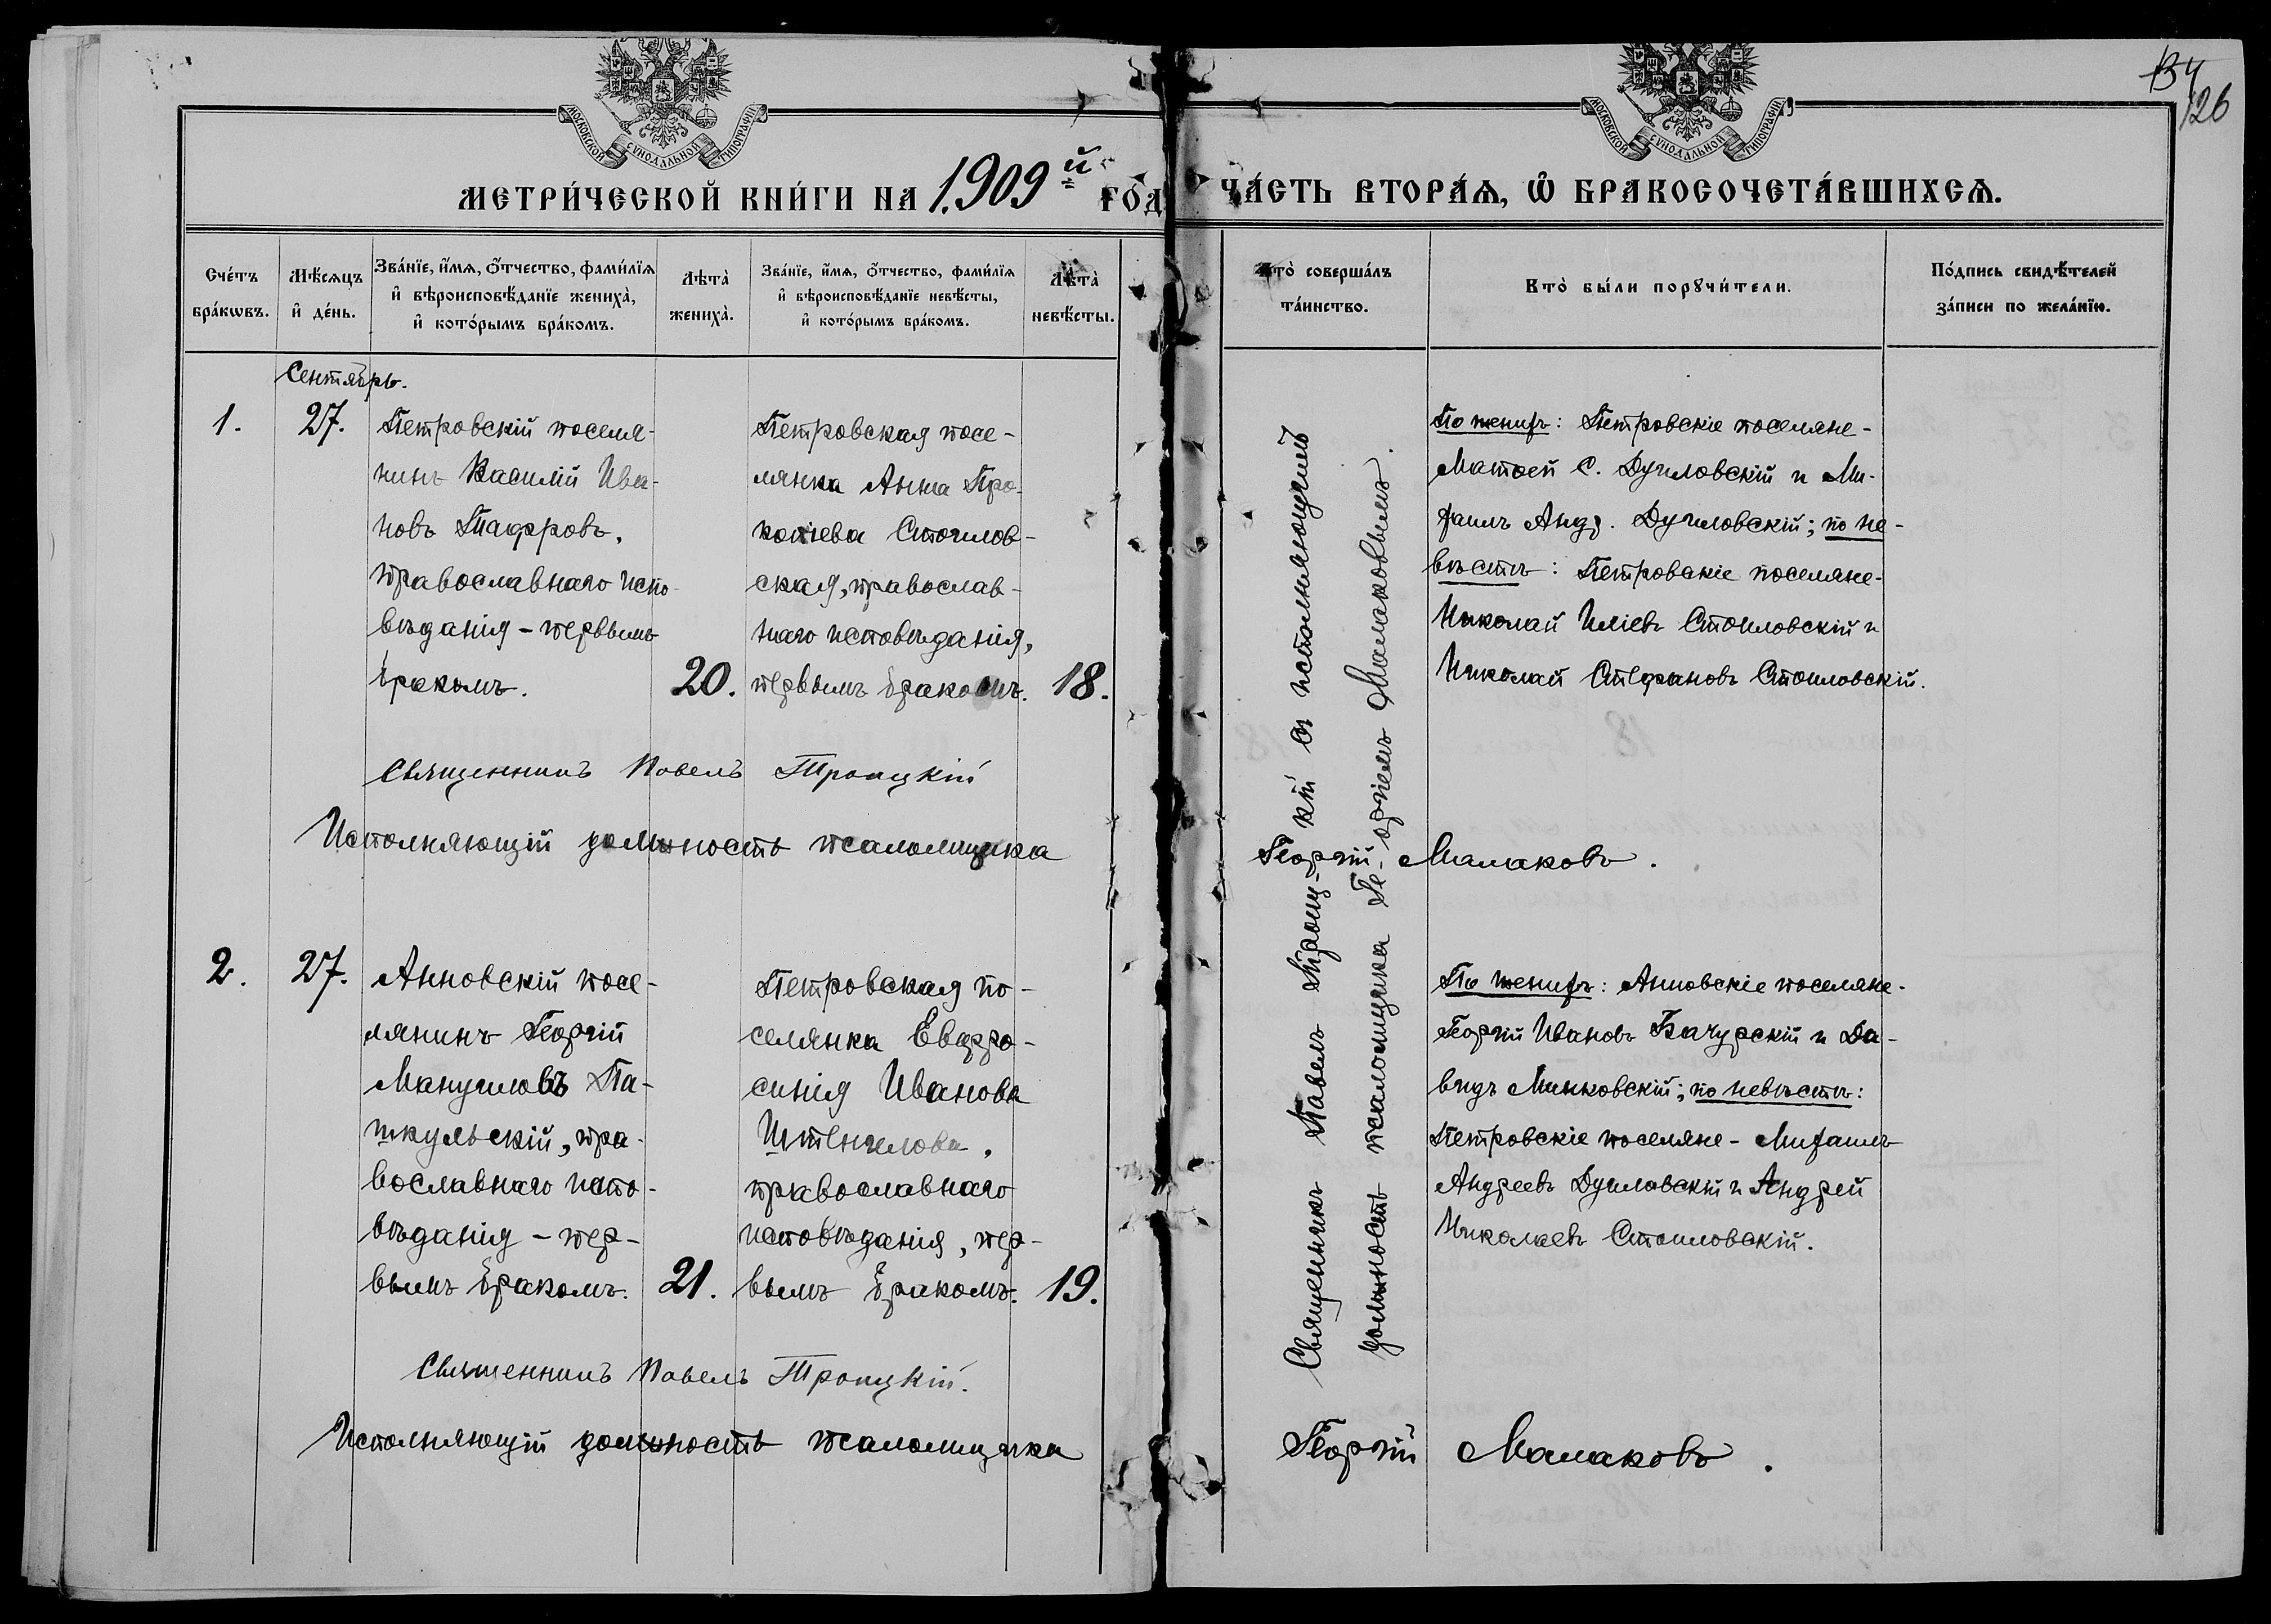 134
126
МОСКОВСКОЙ СУНОДАЛЬНОЙ ТИПОГРАФІИ
МОСКОВСКОЙ СУНОДАЛЬНОЙ ТИПОГРАФІИ
МЕТРИ́ЧЕСКОЙ КНИ́ГИ НА 1909й ГО́Д
ЧА́СТЬ ВТОРА́Ѧ, Ѽ БРАКОСОЧЕТА́ВШИХСѦ.
Сче́тъ
бра́кѡвъ.
Мѣ́сѧцъ
и҆ де́нь.
Зва́нїе, и҆́мѧ, ѻ҆́тчество, фами́лїѧ
и҆ вѣроисповѣ́данїе жениха̀,
и҆ кото́рымъ бра́комъ.
Лѣта̀
жениха̀.
Зва́нїе, и҆́мѧ, ѻ҆́тчество, фами́лїѧ
и҆ вѣроисповѣ́данїе невѣ́сты,
и҆ кото́рымъ бра́комъ.
Лѣта̀
невѣ́сты.
Кто̀ соверша́лъ
та́инство.
Кто̀ бы́ли порꙋчи́тели.
По́дпись свидѣ́телей
за́писи по жела́нїю.
Сентябрь.
1.
27.
Петровскій поселя-
нинъ Василій Ива-
новъ
православнаго испо-
вѣданія - первымъ
бракомъ.
20.
Петровская посе-
лянка Анна Про-
копіева Стоилов-
ская, православ-
наго исповѣданія,
первымъ бракомъ.
18.
Священникъ Павелъ Троиц-кій съ исполняющимъ
должность псаломщика Ге-оргіемъ Малаковымъ.
По женихѣ: Петровскіе поселяне -
Матвей С. Дуиловскій и Ми-
хаилъ Андр. Дуиловскій; по не-
вѣстѣ: Петровскіе поселяне-
Николай Иліевъ Стоиловскій и
Николай Стефановъ Стоиловскій.
Священникъ Павелъ Троицкій
Исполняющій должность псаломщика Георгій Малаковъ.
2.
27.
Анновскій посе-
лянинъ Георгій
Мануиловъ Па-
шкульскій, пра-
вославнаго испо-
вѣданія - пер-
вымъ бракомъ.
21.
Петровская по-
селянка Евфро-
синія Иванова
православнаго
исповѣданія, пер-
вымъ бракомъ.
19.
По женихѣ: Анновскіе поселяне -
Георгій Ивановъ Бачурскій и Да-
видъ Минковскій; по невѣстѣ:
Петровскіе поселяне - Михаилъ
Андреевъ Дуиловскій и Андрей
Николаевъ Стоиловскій.
Священникъ Павелъ Троицкій.
Исполняющій должность псаломщика Георгій Малаковъ.